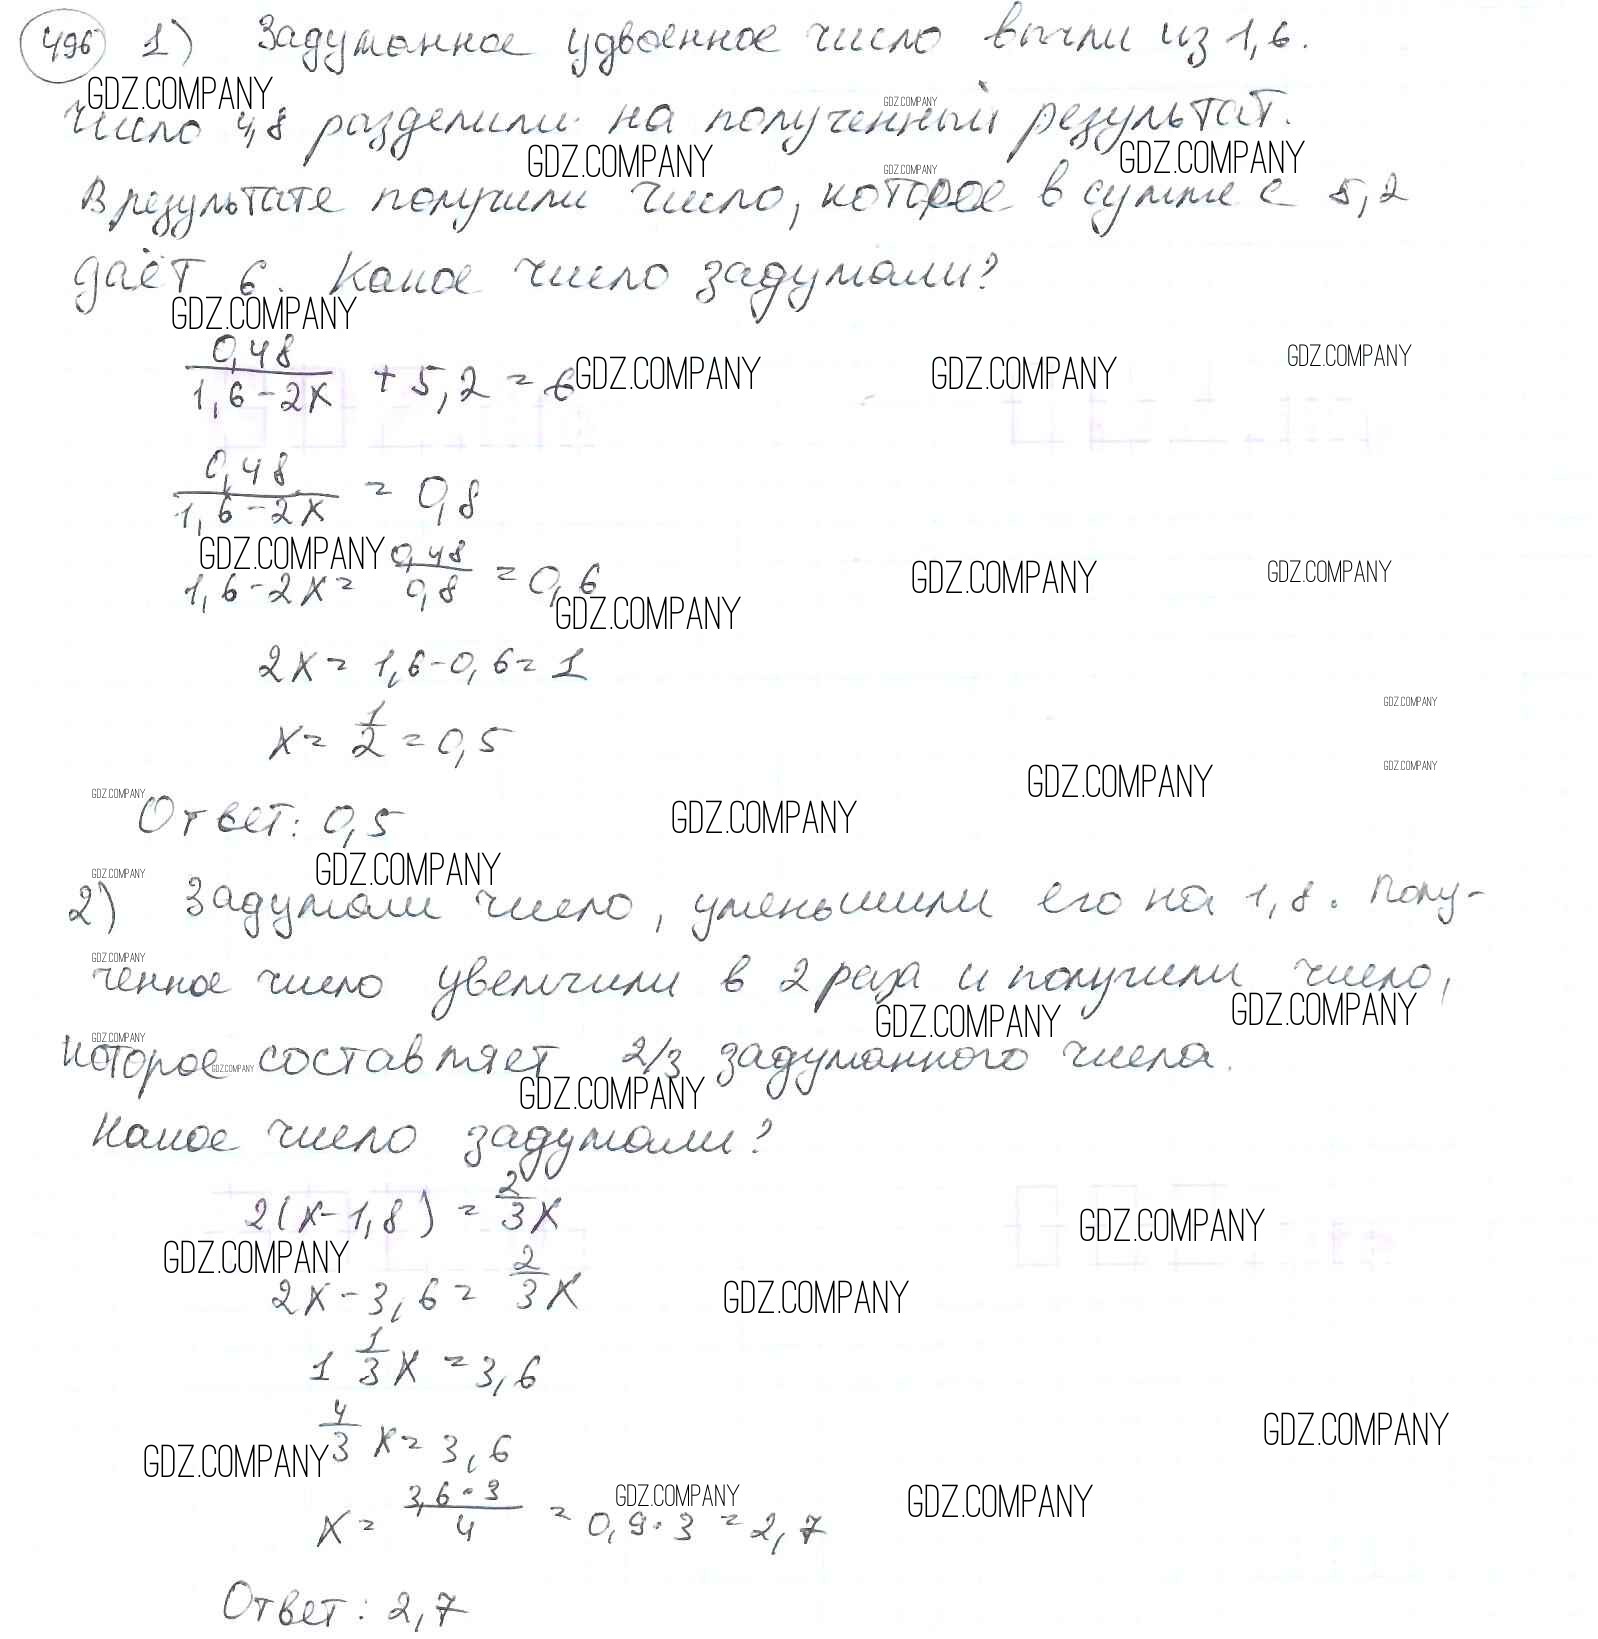 496 1) Задуманное удвоенное число вычли из 1,6.
GDZ.COMPANY GDZ.COMPANY
Число 4,8 разделили на полученный результат.
GDZ.COMPANY GDZ.COMPANY GDZ.COMPANY
В результате получили число, которое в сумме с 5,2
даёт 6. Какое число задумали?
GDZ.COMPANY
0,48/(1,6-2x) + 5,2 = 6 GDZ.COMPANY GDZ.COMPANY GDZ.COMPANY
0,48/(1,6-2x) = 0,8
GDZ.COMPANY GDZ.COMPANY GDZ.COMPANY
1,6-2x = 0,48/0,8 = 0,6
GDZ.COMPANY
2x = 1,6-0,6 = 1
GDZ.COMPANY
x = 1/2 = 0,5
GDZ.COMPANY GDZ.COMPANY
GDZ.COMPANY GDZ.COMPANY
Ответ: 0,5
GDZ.COMPANY GDZ.COMPANY
2) Задумали число, уменьшили его на 1,8. Полу-
GDZ.COMPANY
ченное число увеличили в 2 раза и получили число,
GDZ.COMPANY GDZ.COMPANY
GDZ.COMPANY
которое составляет 2/3 задуманного числа.
GDZ.COMPANY GDZ.COMPANY
Какое число задумали?
2(x-1,8) = 2/3 x GDZ.COMPANY
GDZ.COMPANY
2x-3,6 = 2/3 x GDZ.COMPANY
1 1/3 x = 3,6
4/3 x = 3,6 GDZ.COMPANY
GDZ.COMPANY
GDZ.COMPANY GDZ.COMPANY
x = 3,6·3/4 = 0,9·3 = 2,7
Ответ: 2,7